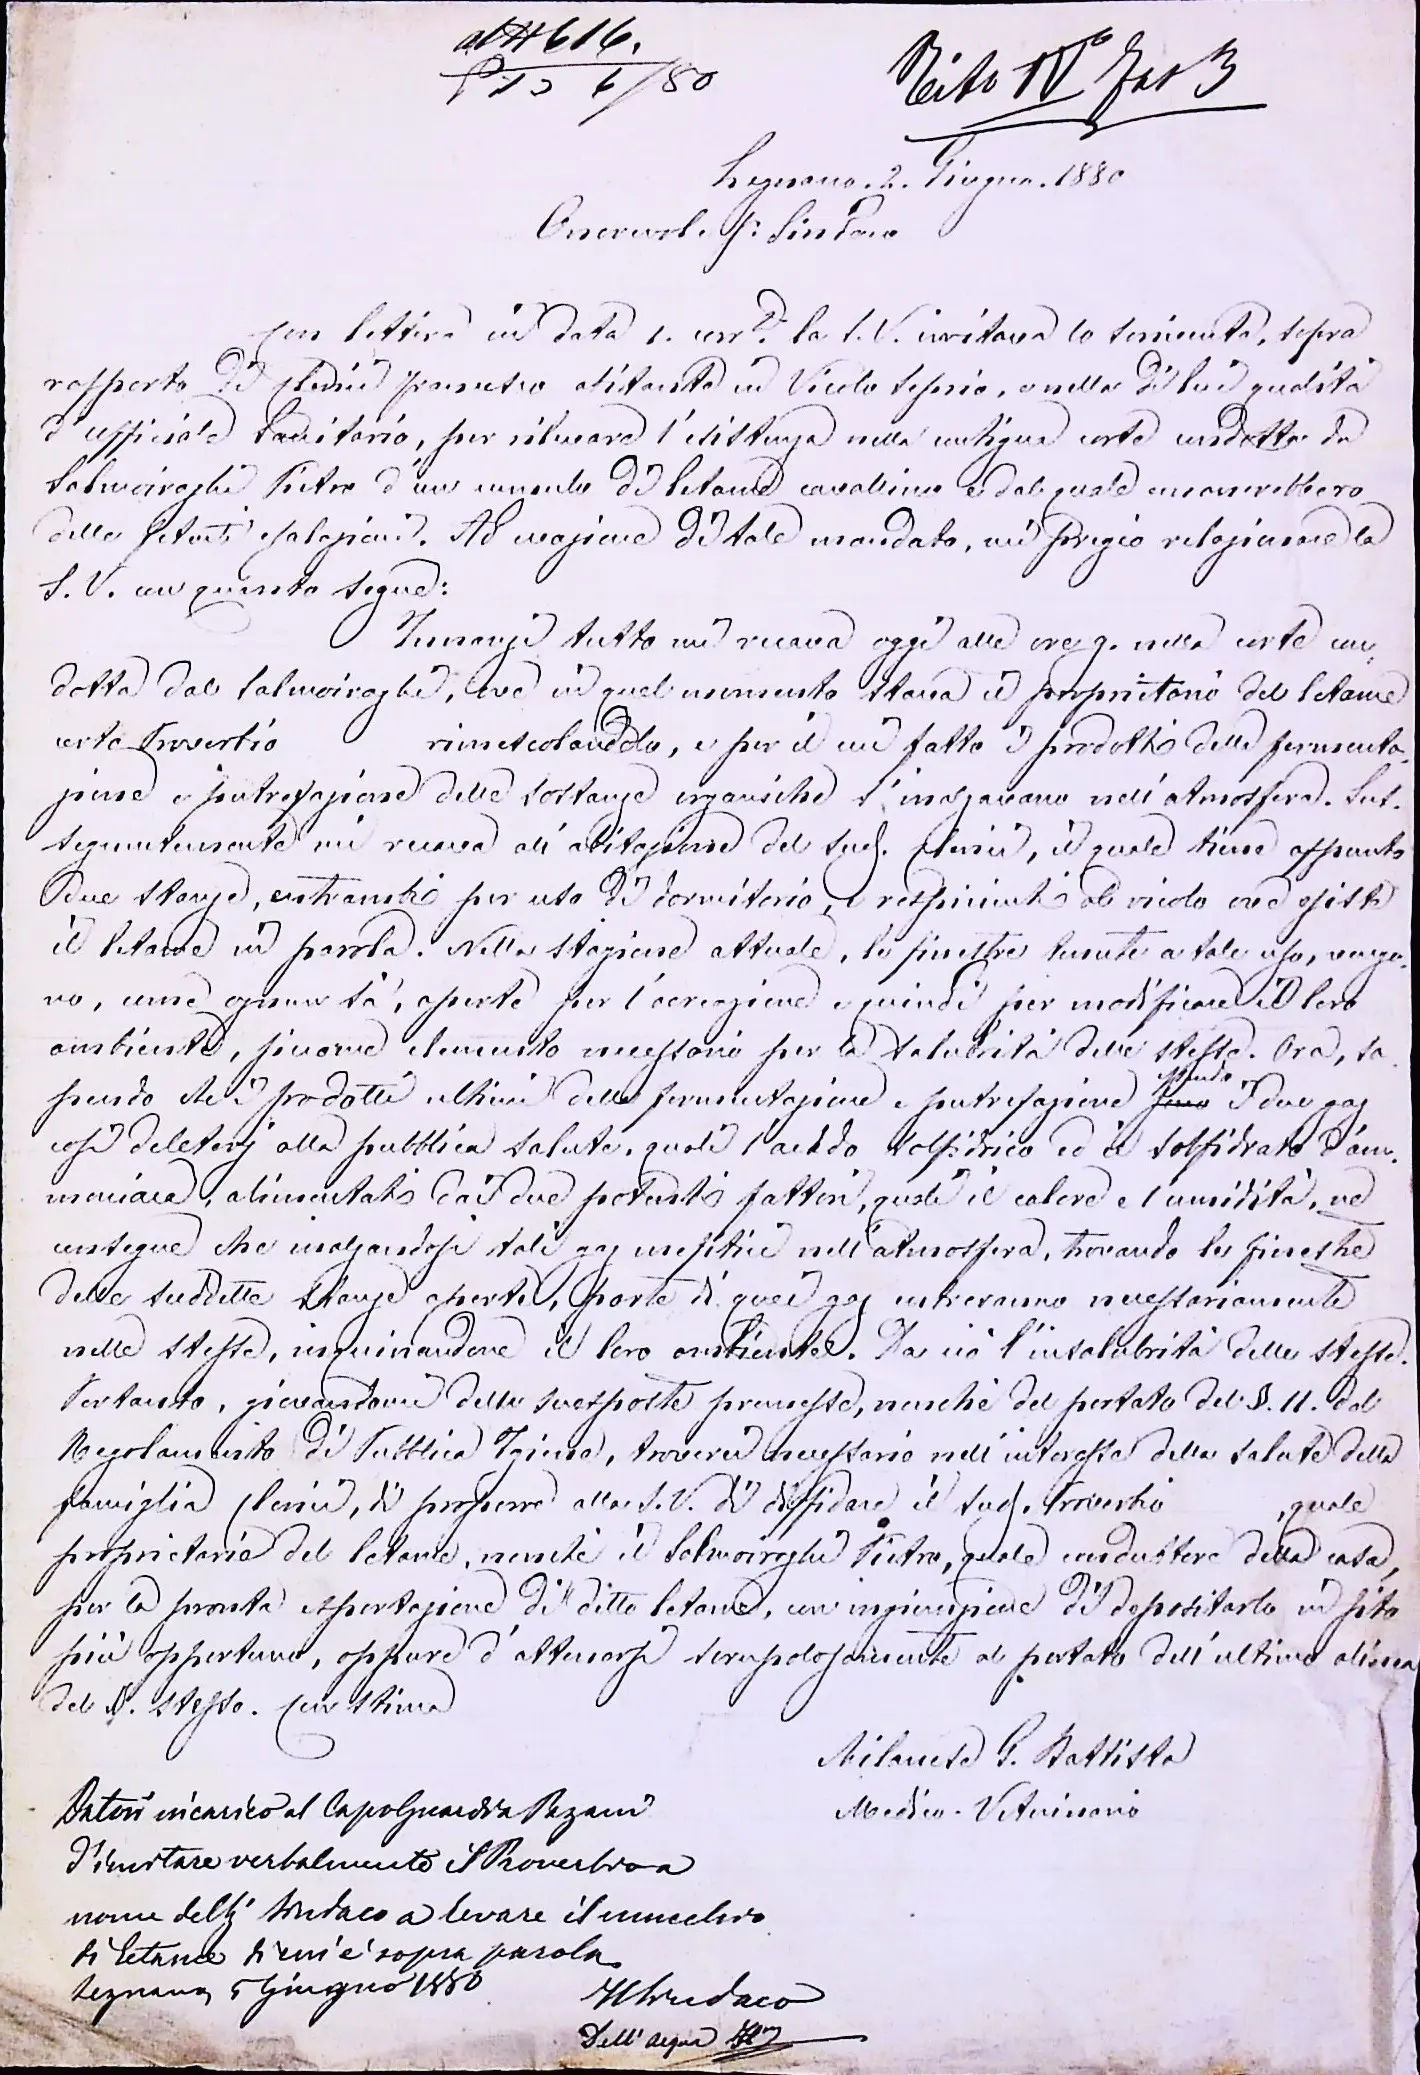 al N 616.
P 13 6/80
Tito IV° Fas 3
Legnano. 2. Giugno. 1880
Onorevole Sr. Sindaco
Con lettera in data 1. corr.e la S. V. invitava lo scrivente, sopra
rapporto di Clerici Francesco abitante in Vicolo Seprio, e nella di lui qualità
d'ufficiale Sanitario, per rilevare l'esistenza nella contigua corte condotta da
Salmoiraghi Pietro d'un cumulo di letame cavallino e dal quale emanerebbero
delle fetenti esalazioni. Ad evasione di tale mandato, mi pregio relazionare la
S. V. con quanto segue:
Innanzi tutto mi recava oggi alle ore 9. nella corte con,
dotta dal Salmoiraghi, ove in quel momento stava il proprietario del letame
certo Proverbio rimescolandolo, e per il cui fatto i prodotti della fermenta,
zione e putrefazione delle sostanze organiche s'inalzavano nell'atmosfera. Sus-
seguentemente mi recava all'abitazione del sud. Clerici, il quale tiene appunto
due stanze, entrambi per uso di dormitorio, e respicienti al vicolo ove esiste
il letame in parola. Nella stagione attuale, le finestre tenute a tale uso, vengo,
no, come ognun sa, aperte per l'aereazione e quindi per modificare il loro
ambiente, siccome elemento necessario per la salubrità delle stesse. Ora, sa,
pendo che i prodotti ultimi della fermentazione e putrefazione essendo i due gaz
così deleterj alla pubblica salute, quali l'acido solfidrico ed il solfidrato d'am,
moniaca, alimentati dai due potenti fattori, quali il calore e l'umidità, ne
consegue che inalzandosi tali gaz mefitici nell'atmosfera, trovando le finestre
delle suddette stanze aperte, parte di quei gaz entreranno necessariamente
nelle stesse, inquinandone il loro ambiente. Da ciò l'insalubrità delle stesse.
Pertanto, giovandomi delle suesposte premesse, nonché del portato del §. 11. del
Regolamento di Pubblica Igiene, troverei necessario nell'interesse della salute della
famiglia Clerici, di proporre alla S. V. di diffidare il sud. Proverbio , quale
proprietario del letame, nonché il Salmoiraghi Pietro, quale conduttore della casa,
per la pronta esportazione di detto letame, con ingiunzione di depositarlo in sito
più opportuno, oppure d'attenersi scrupolosamente al portato dell'ultimo alinea
del §. stesso. Con stima
Milanese G. Battista
Medico-Veterinario
Datosi incarico al Capo Guardia Pazani
d'invitare verbalmente il Proverbio a
nome del Sr Sindaco a levare il mucchio
di letame di cui è sopra parola.
Legnano, 5 Giugno 1880
Il Sindaco
Dell'Acqua